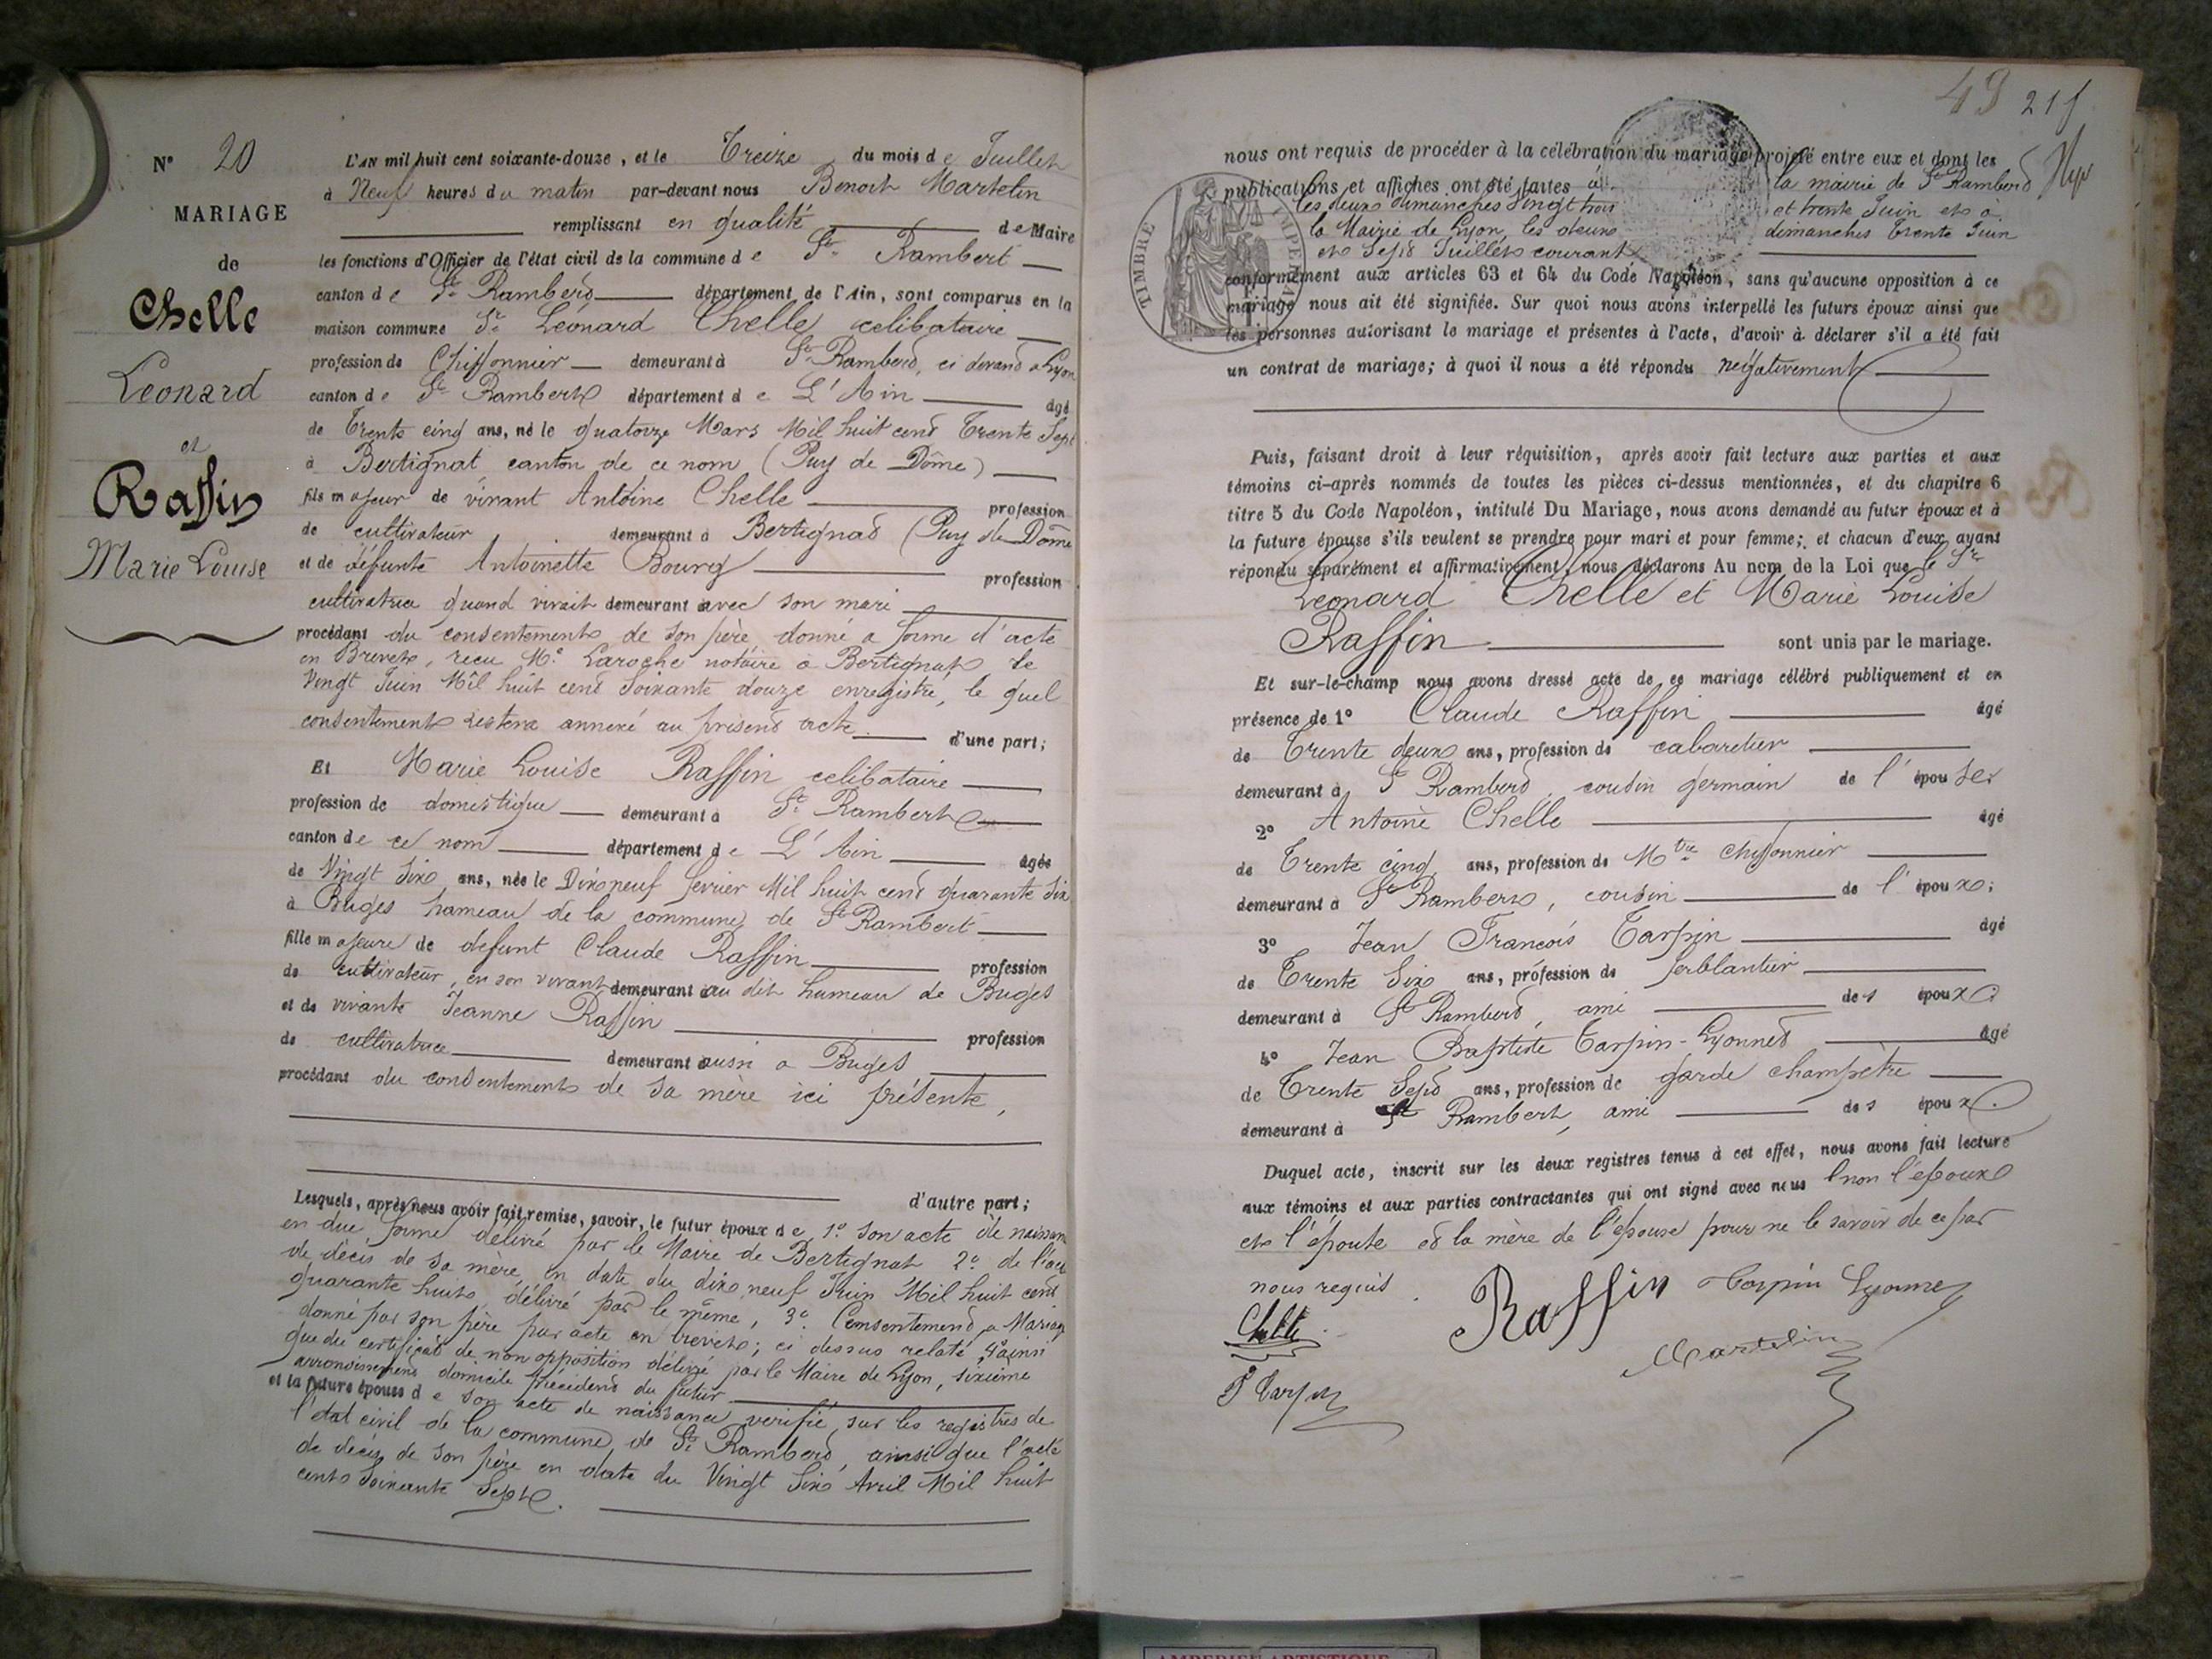 N° 20
MARIAGE
de
Chelle
Léonard
et
Raffin
Marie Louise
L'AN mil huit cent soixante-douze, et le Treize du mois de Juillet
à Neuf heures du matin par-devant nous Benoit Martelin
remplissant en qualité de Maire
les fonctions d'Officier de l'état civil de la commune de St Rambert
canton de St Rambert département de l'Ain, sont comparus en la
maison commune Sr Léonard Chelle celibataire
profession de Chiffonnier demeurant à St Rambert, ci devant a Lyon
canton de St Rambert département de L'Ain âgé
de Trente cinq ans, né le quatorze Mars Mil huit cent Trente Sept
à Bertignat canton de ce nom (Puy de Dôme)
fils majeur de vivant Antoine Chelle profession
de cultivateur demeurant à Bertignat (Puy de Dôme
et de défunte Antoinette Bourg profession
cultivatrice quand vivait demeurant avec son mari
procédant du consentement de son père donné a forme d'acte
en Brevet, reçu Me Laroche notaire a Bertignat le
Vingt Juin Mil huit cent Soixante douze enregistré, le quel
consentement restera annexé au présent acte d'une part;
Et Marie Louise Raffin celibataire
profession de domestique demeurant à St Rambert
canton de ce nom département de L'Ain âgée
de Vingt Six ans, née le Dix neuf fevrier Mil huit cent quarante Six
à Buges hameau de la commune de St Rambert
fille majeure de defunt Claude Raffin profession
de cultivateur, en son vivant demeurant au dit hameau de Buges
et de vivante Jeanne Raffin profession
de cultivatrice demeurant aussi a Buges
procédant du consentement de sa mère ici présente,
d'autre part;
Lesquels, après nous avoir fait remise, savoir, le futur époux de 1° son acte de naissan
en due forme délivré par le Maire de Bertignat 2° de l'acte
de décès de sa mère en date du dix neuf Juin Mil huit cent
quarante huit, délivré par le même, 3° Consentement a Mariag
donné par son père par acte en brevet; ci dessus relaté, 4° ainsi
que du certificat de non opposition délivré par le Maire de Lyon, sixieme
arrondissement domicile précédent du futur
et la future épouse de son acte de naissance verifié sur les registres de
l'état civil de la commune de St Rambert, ainsi que l'acte
de décès de son père en date du Vingt Six Avril Mil huit
cent Soixante Sept.
49 215
nous ont requis de procéder à la célébration du mariage projeté entre eux et dont les
publications et affiches ont été faites à la mairie de St Rambert
les deux dimanches Vingt trois et trente Juin et à
la Mairie de Lyon, les deux dimanches trente Juin
et Sept Juillet courant
TIMBRE IMPERIAL
conformément aux articles 63 et 64 du Code Napoléon, sans qu'aucune opposition à ce
mariage nous ait été signifiée. Sur quoi nous avons interpellé les futurs époux ainsi que
les personnes autorisant le mariage et présentes à l'acte, d'avoir à déclarer s'il a été fait
un contrat de mariage; à quoi il nous a été répondu négativement
Puis, faisant droit à leur réquisition, après avoir fait lecture aux parties et aux
témoins ci-après nommés de toutes les pièces ci-dessus mentionnées, et du chapitre 6
titre 5 du Code Napoléon, intitulé Du Mariage, nous avons demandé au futur époux et à
la future épouse s'ils veulent se prendre pour mari et pour femme; et chacun d'eux ayant
répondu séparément et affirmativement, nous déclarons Au nom de la Loi que le Sr
Léonard Chelle et Marie Louise
Raffin sont unis par le mariage.
Et sur-le-champ nous avons dressé acte de ce mariage célébré publiquement et en
présence de 1° Claude Raffin âgé
de Trente deux ans, profession de cabaretier
demeurant à St Rambert, cousin germain de l'épouse
2° Antoine Chelle âgé
de Trente cinq ans, profession de Mtre Chiffonnier
demeurant à St Rambert, cousin de l'époux;
3° Jean François Tarpin âgé
de Trente Six ans, profession de ferblantier
demeurant à St Rambert, ami des époux
4° Jean Baptiste Tarpin-Lyonnet âgé
de Trente Sept ans, profession de garde champêtre
demeurant à St Rambert, ami des époux.
Duquel acte, inscrit sur les deux registres tenus à cet effet, nous avons fait lecture
aux témoins et aux parties contractantes qui ont signé avec nous non l'époux
et l'épouse et la mère de l'épouse pour ne le savoir de ce par
nous requis.
Chelle
Raffin
Tarpin Lyonnet
Martelin
F Tarpin